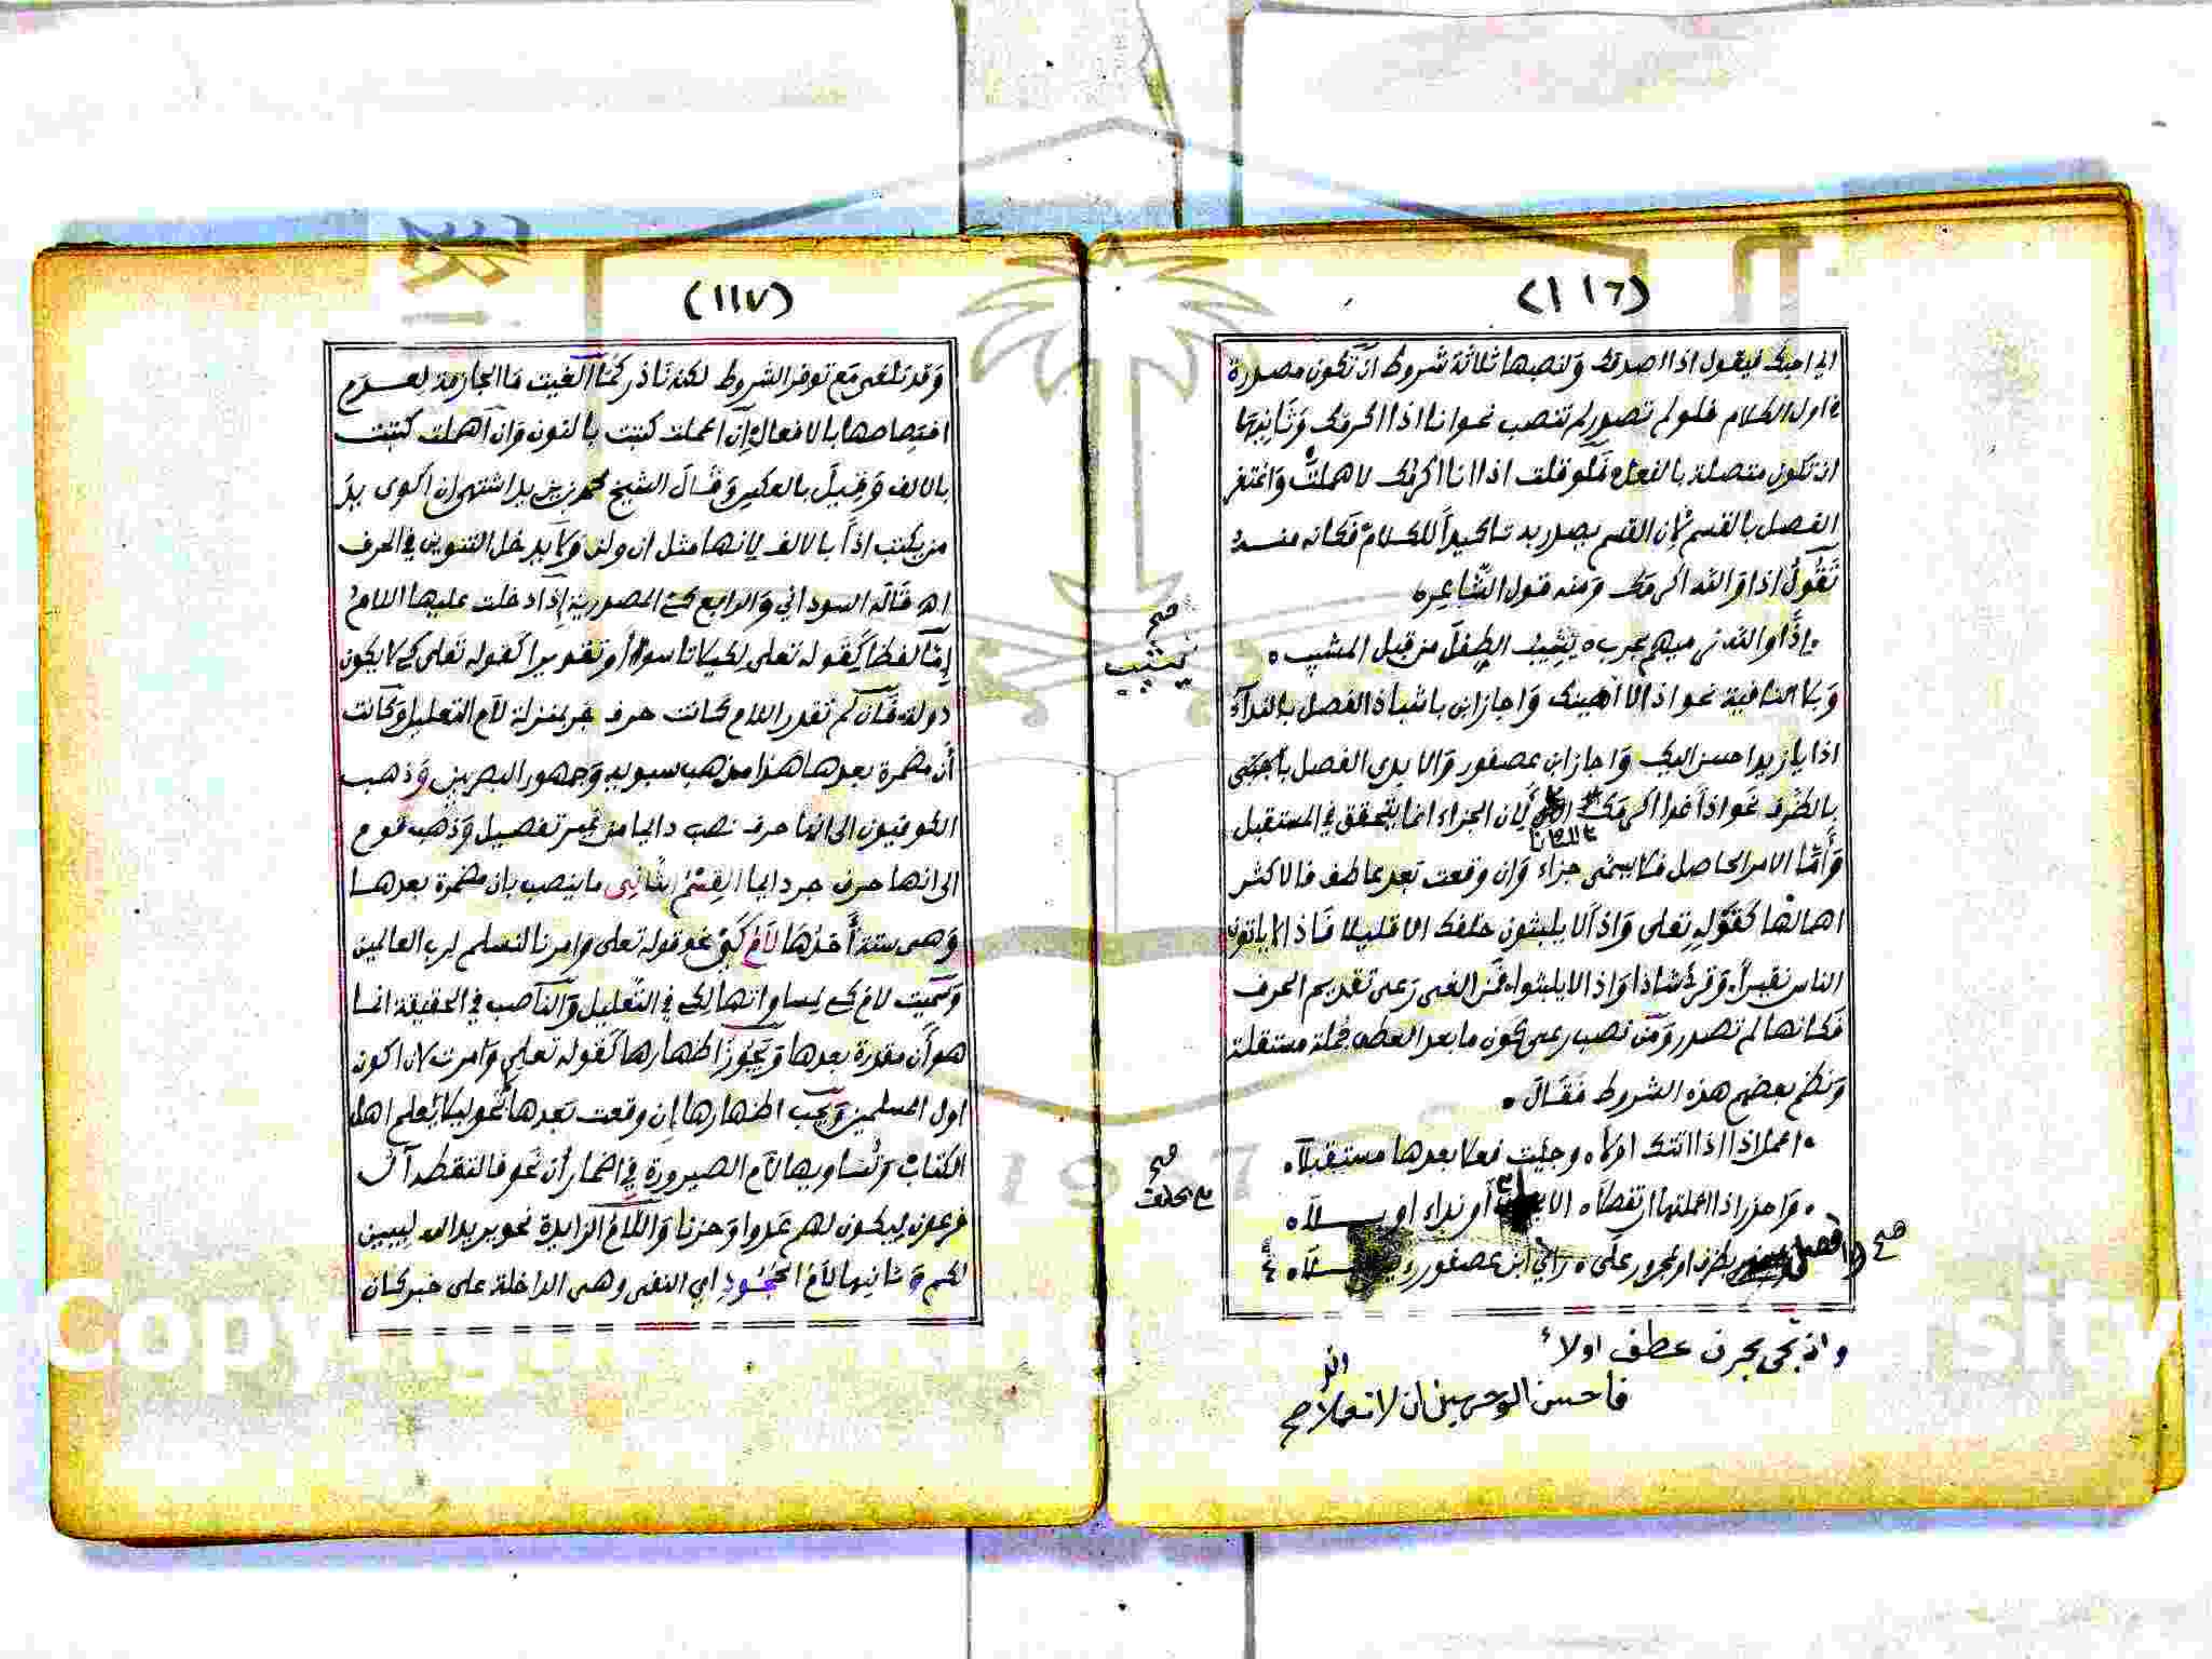 (١١٦)
اني احبك فيقول اذا اصدقك وَلنصبها ثلاثة شروط ان تكون مصدرة
في اول الكلام فلو لم تصدر لم تنصب نحو انا اذا اكرمك وَثَانِيَهَا
ان تكون متصلة بالفعل فَلو قلت اذا انا اكرمك لاهملت وَاغتفر
الفصل بالقسم لِان القسم يصدر به تاكيداً للكلام فكانه منه
تَقُولُ اذا وَالله اكرمك وَمنه قول الشّاعره
۰ اِذًا والله نرميهم بحرب ۰ يُشِيبُ الطِفْلَ من قبل المشيب ۰
صح
يشيب
وَبلا النافية نحو اذا لا اُهينك وَاجاز ابن باشباذ الفصل بالندآء
اذا يا زيد احسن اليك وَاجاز ابن عصفور وَالابدي الفصل
بالظرف نحو اذاً غدا اكرمك لِان الجزاء انما يتحقق في المستقبل
وَأَمَّا الامر الحاصل فلا يسمى جزاء وَان وقعت بَعد عاطف فالاكثر
اهمالها كقَوْلِهِ تعلى وَاذاً لا يلبثون خلفك الا قليلا فَاذا لا ياتون
الناس نقيراً وَقرِئ شاذا وَاذا لا يلبثوا فمن الغى رَعى تقديم الحرف
فَكانها لم تصدر وَمَن نصب رعى كون ما بعد العطف جملة مستقلة
وَنظم بعضهم هذه الشروط فَقَالَ ۰
۰ اعمل اذا اذا اتتك اولاَ ۰ وجئت فعلا بعدها مستقبلاَ ۰
صح
۰ وَاحذر اذا اعملتها ان تفصلاَ ۰ الا أو نداء او بلاَ ۰
صح وافصل بظرف او بمجرور على ۰ راي ابن عصفور
واذ تجى بحرف عطف اولاً
فاحسن الوجهين ان لا تعملا صح
(١١٧)
وَقد تلغى مَع توفر الشروط لكنه نَادر كَمَا اُلغيت مَا الجازمة لعدم
اختِصاصها بالافعال فاِن اعملت كتبت بالنون وَان اُهملت كتبت
بالالف وَقِيلَ بالعكس وَقَالَ الشيخ محمد بن يزيد اشتهى ان اكوى يد
من يكتب اذاً بالالف لِانها مثل ان ولن وَلَا يدخل التنوين في الحرف
اه قَالَه السوداني وَالرابع كي المصدرية اِذَا دخلت عليها اللام
اِمّا لفظا كَقَوله تعلى لكيلا تاسوا أو تقديرا كقوله تَعلى كَي لا يكون
دولة فَاِن لم تقدر اللام كانت حرف جر بمنزلة لاَم التعليل وَكانت
أَن مضمرة بعدها هذا مذهب سيبويه وَجمهور البصريين وَذهب
الكوفيون الى انها حرف نصب دايما من غير تفصيل وَذهب قوم
الى انها حرف جر دايما القِسْمُ الثَانِى ما ينصب بان مضمرة بعدها
وَهى ستة أَحدُهَا لاَمُ كَيْ نحو قوله تعلى وَامرنا لنسلم لرب العالمين
وَسُمّيت لام كي لمساواتها لكي في التّعليل وَالنَاصب في الحقيقة انما
هو أَن مقدرة بعدها وَيَجُوز اظهارها كَقوله تعلى وَامرت لان اكون
اول المسلمين وَيَجِب اظهارها اِن وقعت بَعدها نحو ليلا يَعلم اهل
الكتاب وَتُساويها لاَم الصيرورة في اضمار أَن نَحو فالتقطه آل
فرعون ليكون لهم عَدوا وَحزنا وَاللّام الزايدة نحو يريد الله لِيبين
لكم وَثانيها لاَمُ الجُحُودِ اي النفى وهى الداخلة على خبر كان